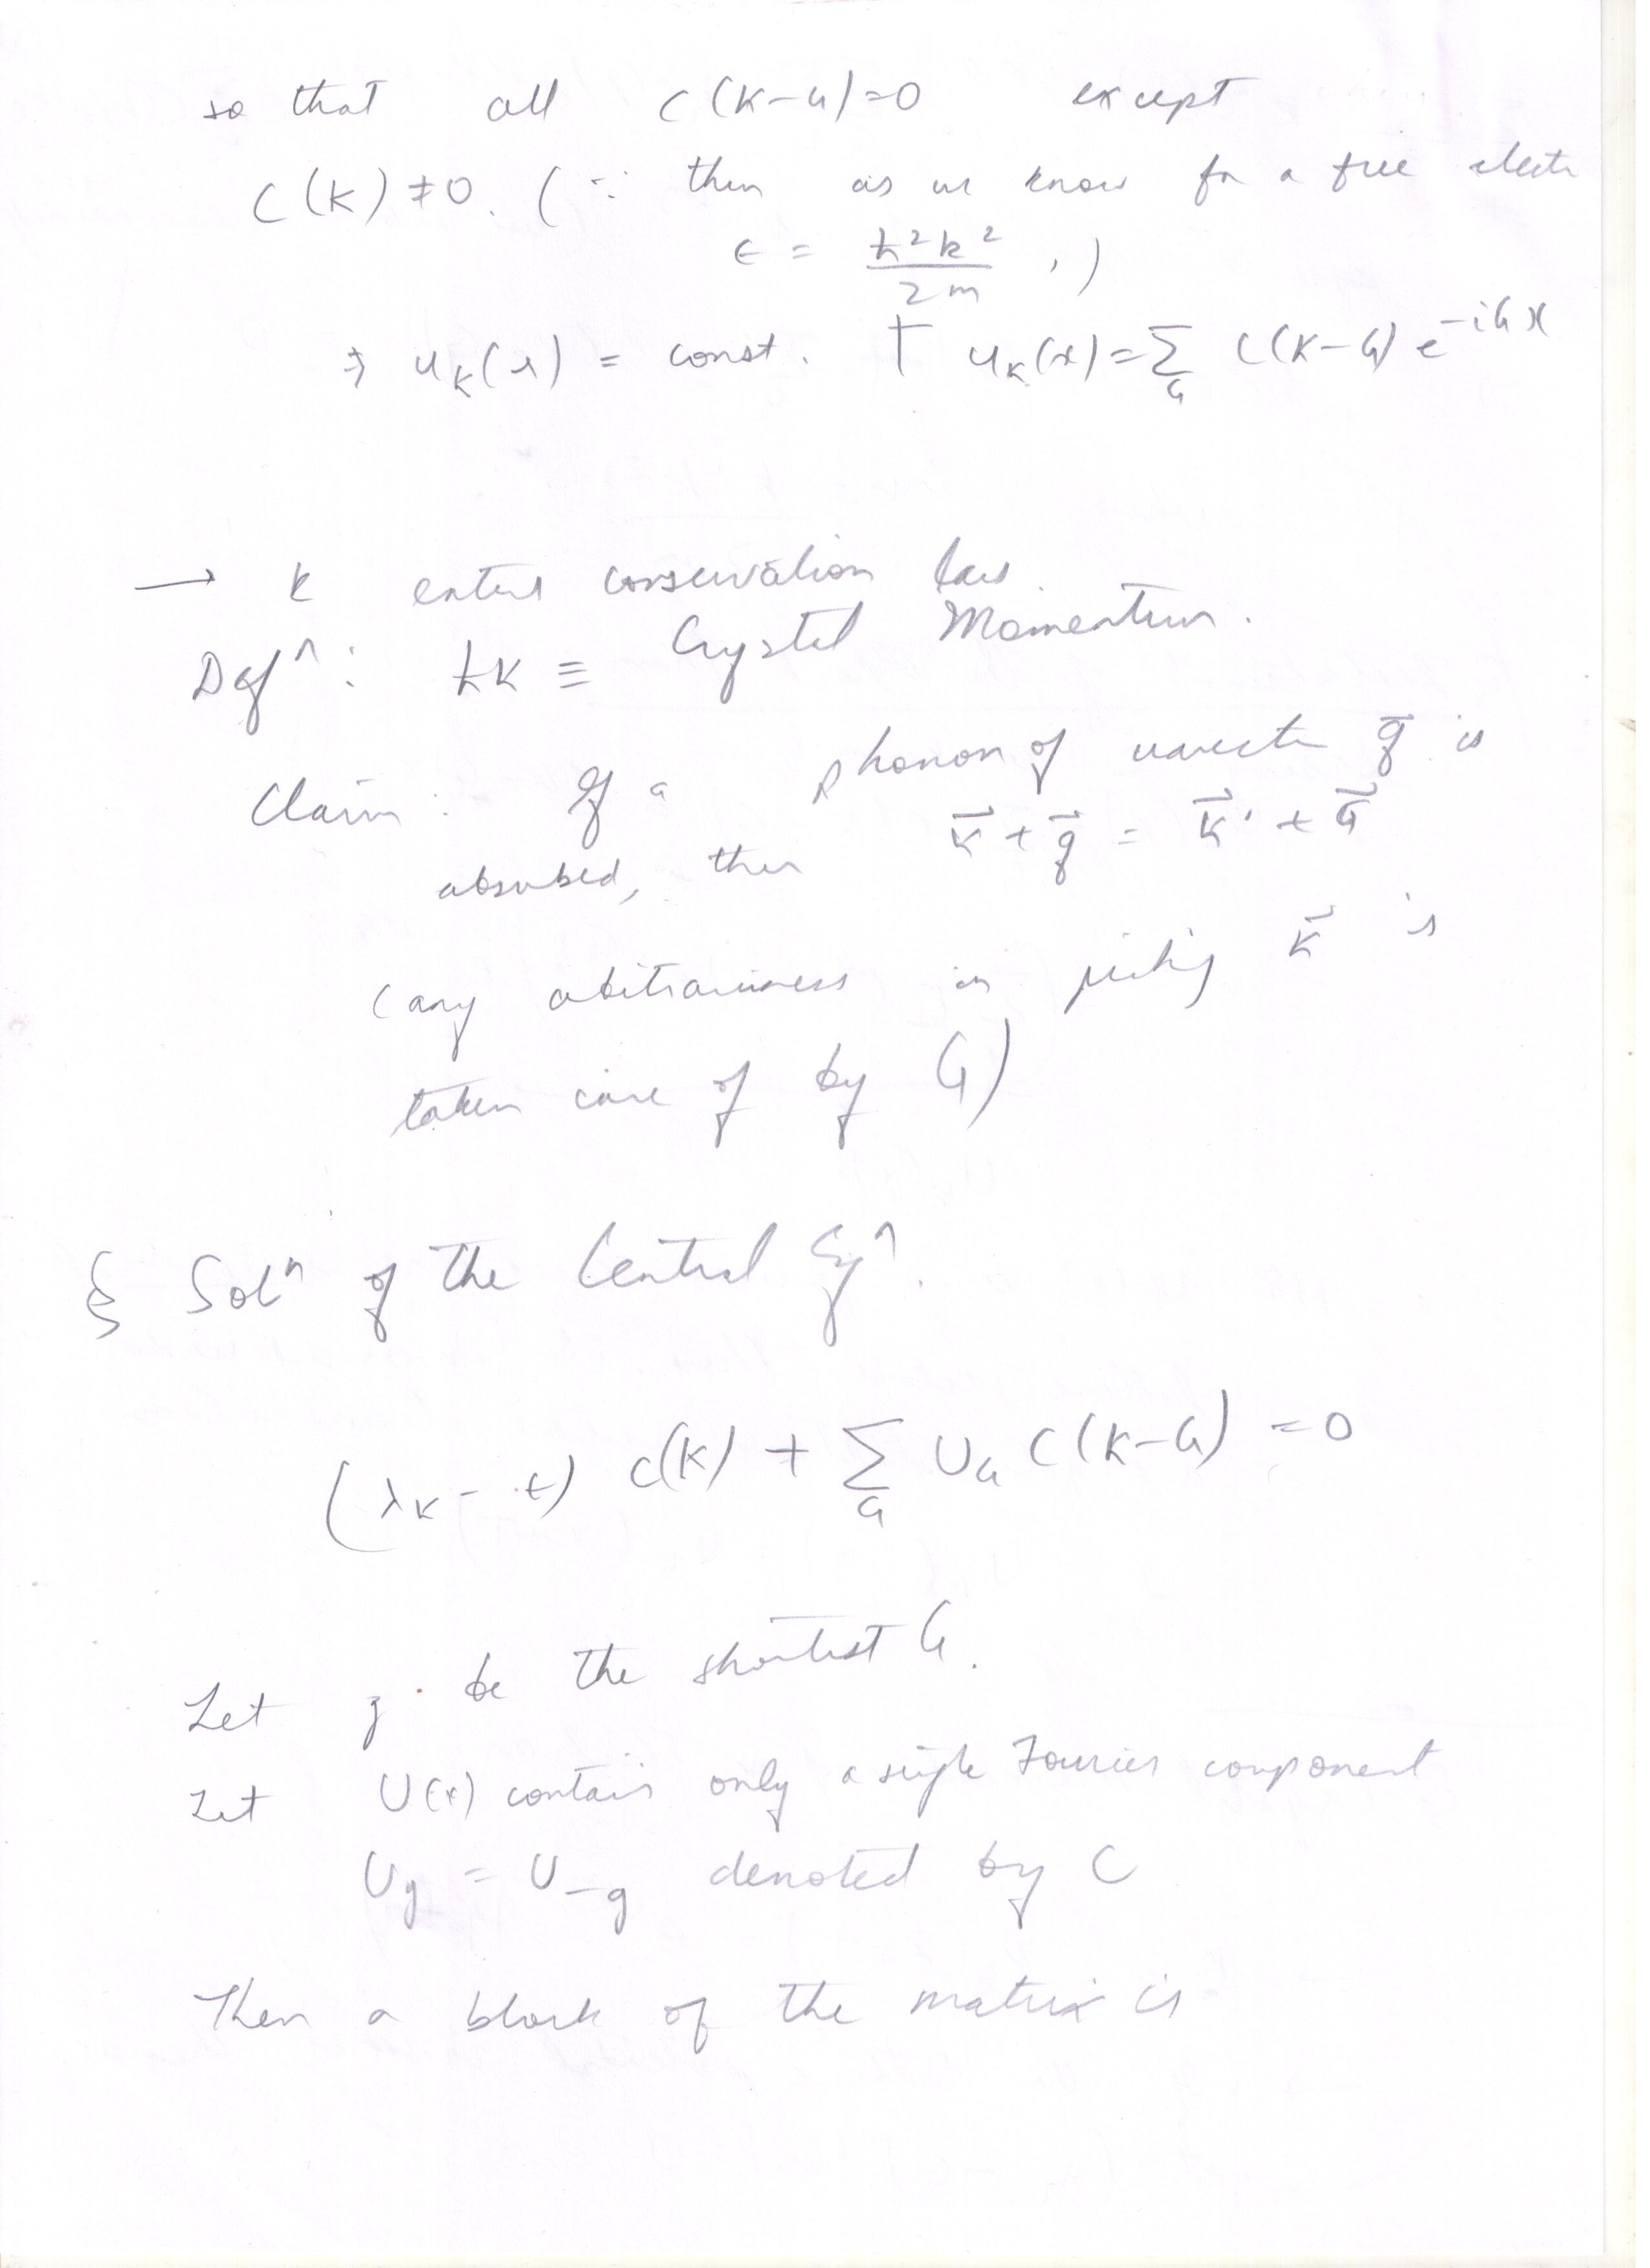 so that all C(K-G)=0 except
C(K) ≠0. (∵ then as we know for a free electr
ϵ = ħ²k²/2m , )
⇒ u_K(x) = const. † u_K(x)=∑_G C(K-G) e^{-iGx}
→ K enters conservation laws.
Defⁿ: ħK ≡ Crystal Momentum.
Claim: If a phonon of wavevector q⃗ is
absorbed, then K⃗ + q⃗ = K⃗' + G⃗
(any arbitrariness in picking K⃗ is
taken care of by G)
§ Solⁿ of the Central Eqⁿ.
(λ_K - ϵ) C(K) + ∑_G U_G C(K-G) =0
Let g be the shortest G.
Let U(x) contain only a single Fourier component
U_g = U_{-g} denoted by C
Then a block of the matrix is